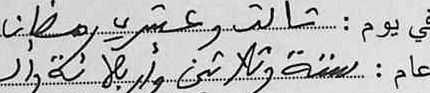 في يوم : ثالث وعشري رمضان
عام : ستة وثلاثين وأربعمائة وألـ